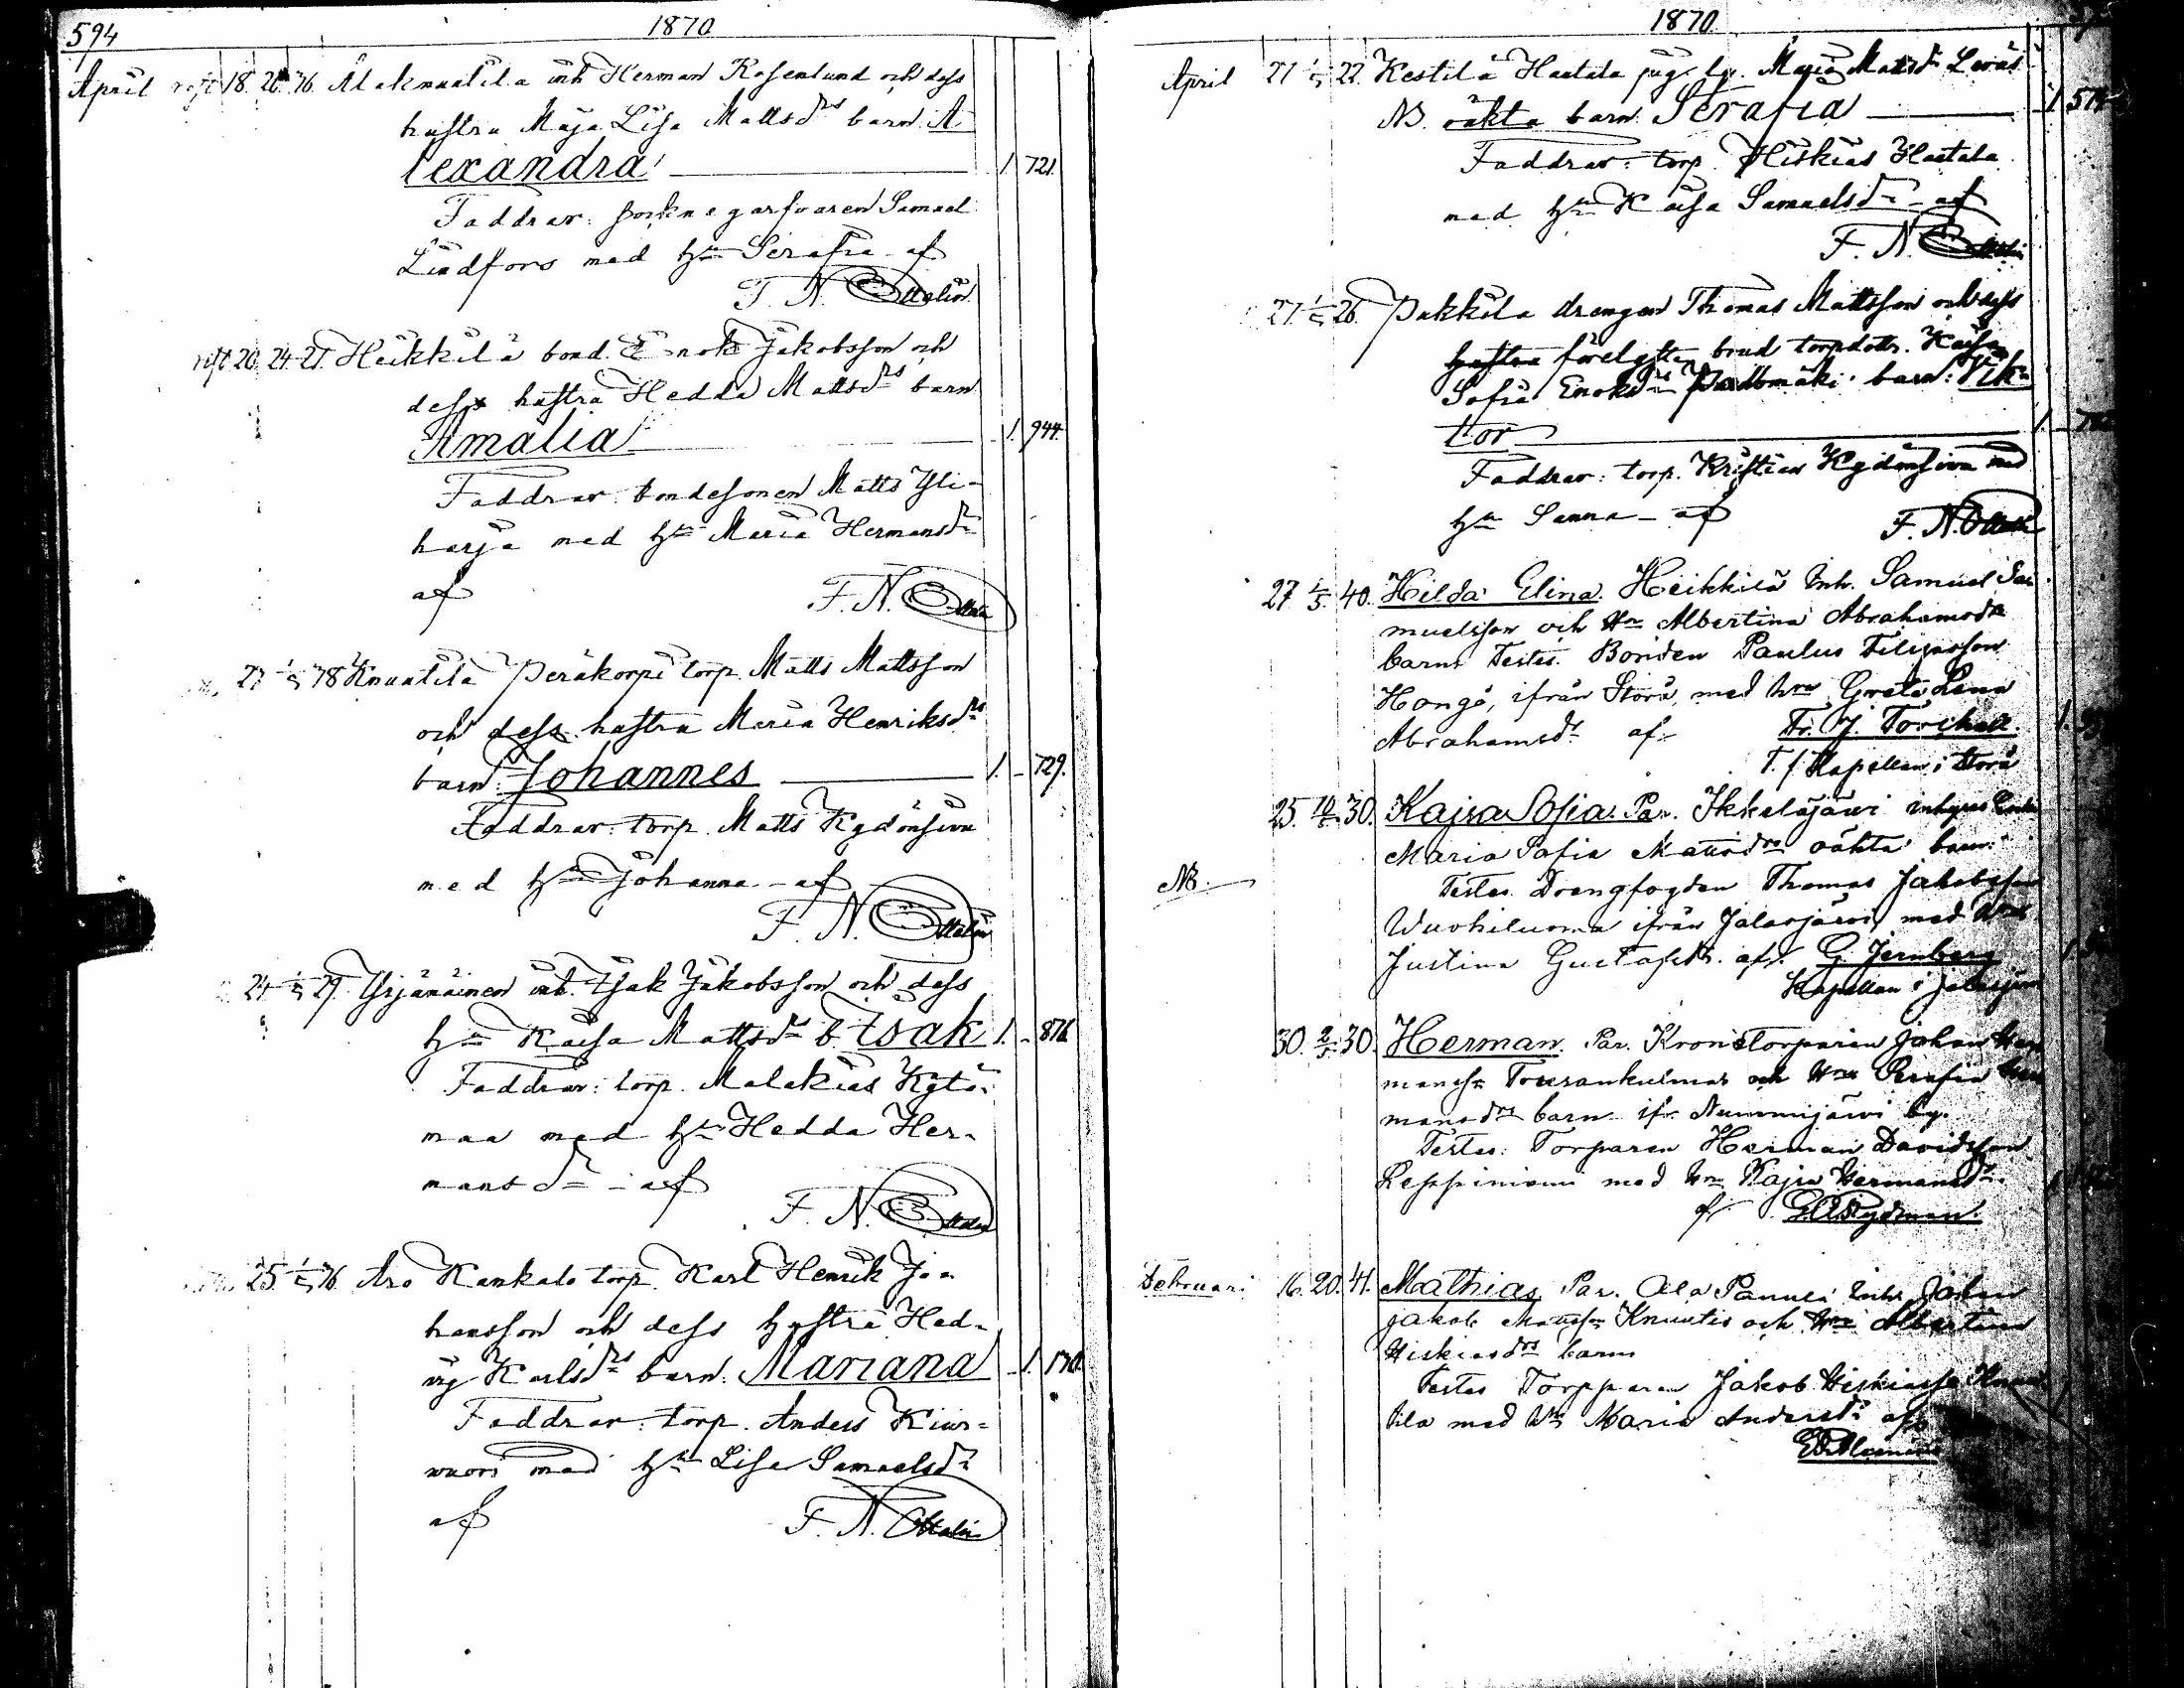 594
1870
April 18. 26. 36. Alaknuutila inh Herman Rosenlund och dess
hustru Maja Lisa Mattsdrs barn: A
lexandra 1. 721.
Faddrar: socknegarfvaren Samuel
Lindfors med hn Serafia af
F. N. Ottelin
20. 24. 21. Heikkilä bond. Enok Jakobsson och
dess hustru Hedda Mattsdrs barn
Amalia 1. 944.
Faddrar: bondesonen Matts Yli-
harja med hn Maria Hermansdr
af F. N. Ottelin
27 1/5 78 Knuutila Peräkorpi torp. Matts Mattsson
och dess hustru Maria Henriksdrs
barn: Johannes 1. 729.
Faddrar: torp. Matts Kydönsivu
med hn Johanna - af
F. N. Ottelin
24 1/5 29. Yrjänäinen inh. Isak Jakobsson och dess
hu Kaisa Mattsdrs b. Isak 1. 876
Faddrar: torp. Malakias Kytö-
maa med hn Hedda Her-
mansdr - af
F. N. Ottelin
25 1/5 26 Aro Kankalo torp. Karl Henrik Jo-
hansson och dess hustru Hed-
vig Karlsdrs barn: Mariana 1. 170.
Faddrar: torp. Anders Kiur-
vuori med hn Lisa Samuelsdr
af F. N. Ottelin
1870
April 27 1/5 22. Kestilä Haatala pig. Maria Mattsdr
NB. oäkta barn Serafia 1.
Faddrar: torp. Hiskias Haatala
med hn Kaisa Samuelsdr - af
F. N. Ottelin
27. 1/5 26. Pukkila drengen Thomas Mattsson och dess
hustru förelofvte brud torpdottr. Kaisa
Sofia Enoksdrs barn: Vik-
tor 1.
Faddrar: torp. Kristian Kydönsivu med
hn Sanna - af F. N. Ottelin
27 1/5. 40. Hilda Elina. Heikkilä Inh. Samuel Sa-
muelsson och Hn Albertina Abrahamsdr
barn. Testes: Bonden Paulus Filipsson
Hongo, ifrån Storå, med hn Greta Lena
Abrahamsdr af Fr. J. Forsell. 1.
T. f. Kapellan i Storå
25. 30. Kajsa Sofia. Par. Ikkeläjärvi inhyses
Maria Sofia Mattsdrs oäkta barn:
NB. Testes: Drengfogden Thomas Jakobsson
Wuohiluoma ifrån Jalasjärvi med Hn
Justina Gustafsdr. af G. Jernberg 1.
Kapellan i Jalasjärvi
30. 2/5 30. Herman. Par. Kronotorparen Johan Her
manss. Tourankulmas och Hns Serafia Her
mansdrs barn ifr. Nummijärvi by.
Testes: Torparen Herman Davidsson
med hn Kajsa Hermansdr.
af
Februari 16. 20. 41. Mathias. Par. Ala Panula Inh. Johan
Jakob Knuutis och Hns Albertina
Hiskiasdrs barn
Testes Torpparen Jakob Hiskiass. Knuu
tila med hn Maria Andersdr af